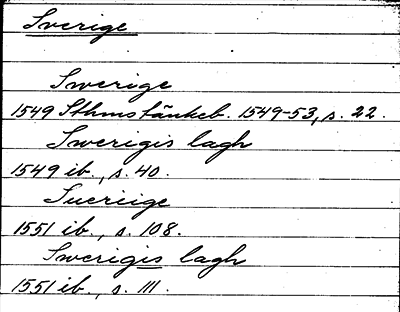 Sverige
Swerige
1549 Sthms tänkeb. 1549-53, s. 22.
Swerigis lagh
1549 ib., s. 40.
Suerige
1551 ib., s. 108.
Swerigis lagh
1551 ib., s. 111.